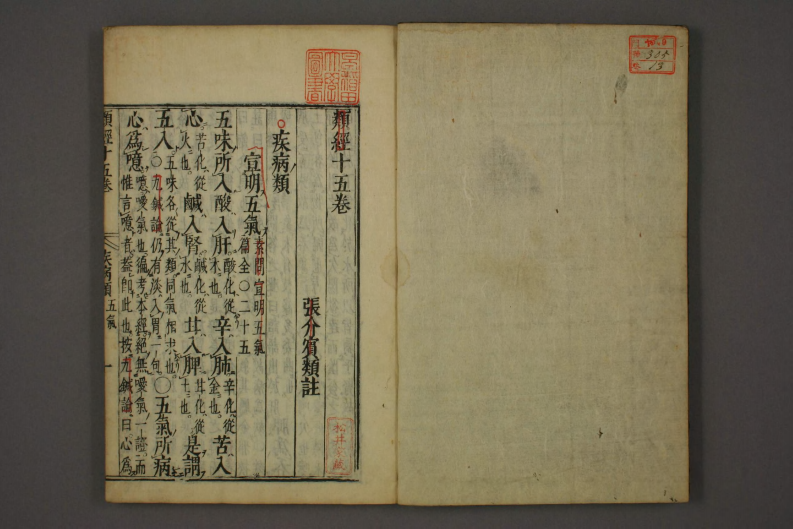 類經十五卷
張介賓類註
疾病類
宣明五氣 素問宣明五氣篇全○二十五
五味所入酸入肝 酸化從木也 辛入肺 辛化從金也 苦入
心 苦化從火也 鹹入腎 鹹化從水也 甘入脾 甘化從土也 是謂
五入 五味各從其類同氣相求也○九鍼論仍有淡入胃一句 ○五氣所病
心爲噫 噫噯氣也徧考本經絕無噯氣一證而惟言噫者蓋卽此也按九鍼論曰心爲
類經十五卷 疾病類 五氣 一
305
13